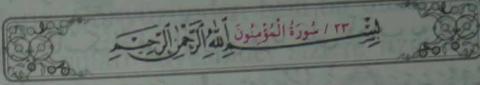 ٢٣ / سُورَةُ الْمُؤْمِنُونَ
بِسْمِ اللهِ الرَّحْمٰنِ الرَّحِيْمِ